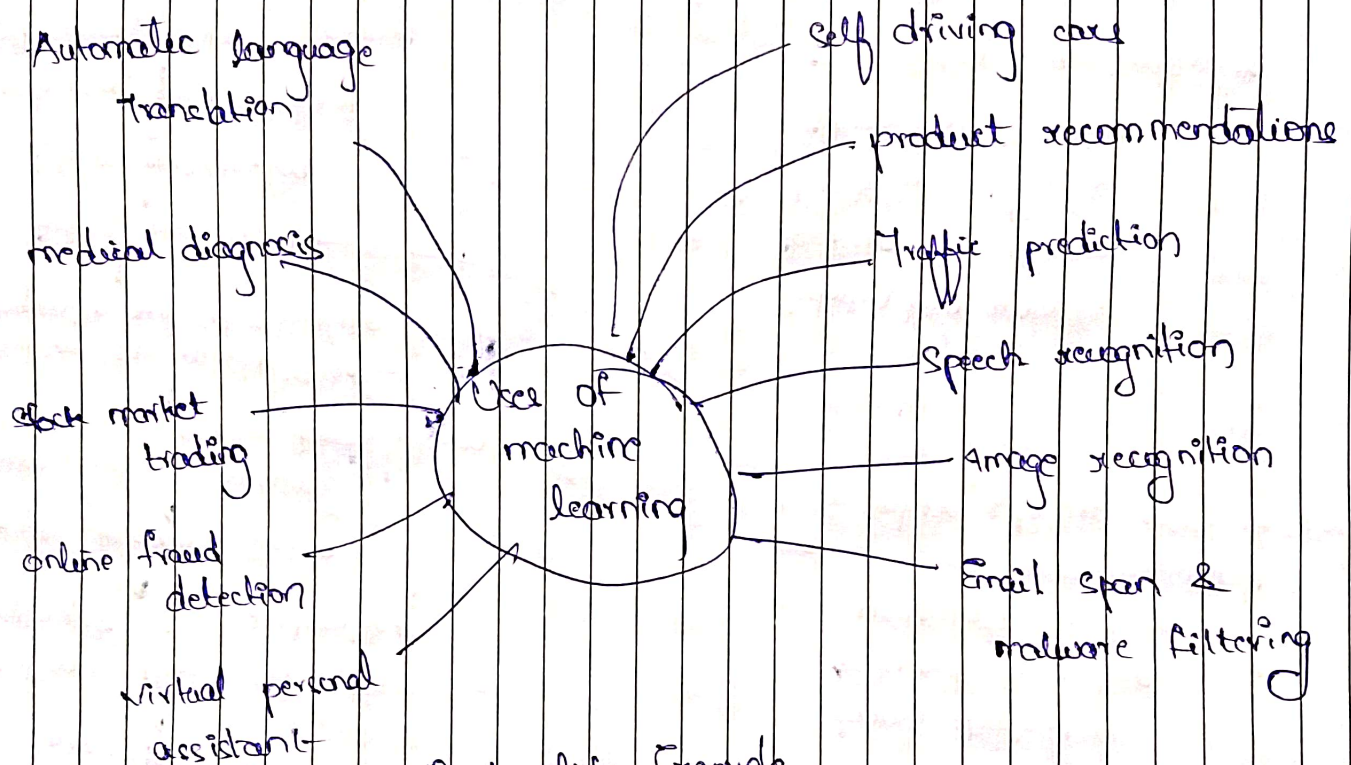 Automatic language
Translation
medical diagnosis
stock market
trading
online fraud
detection
virtual personal
assistant
Uses of
machine
learning
self driving cars
product recommendations
Traffic prediction
Speech recognition
Image recognition
Email span &
malware filtering